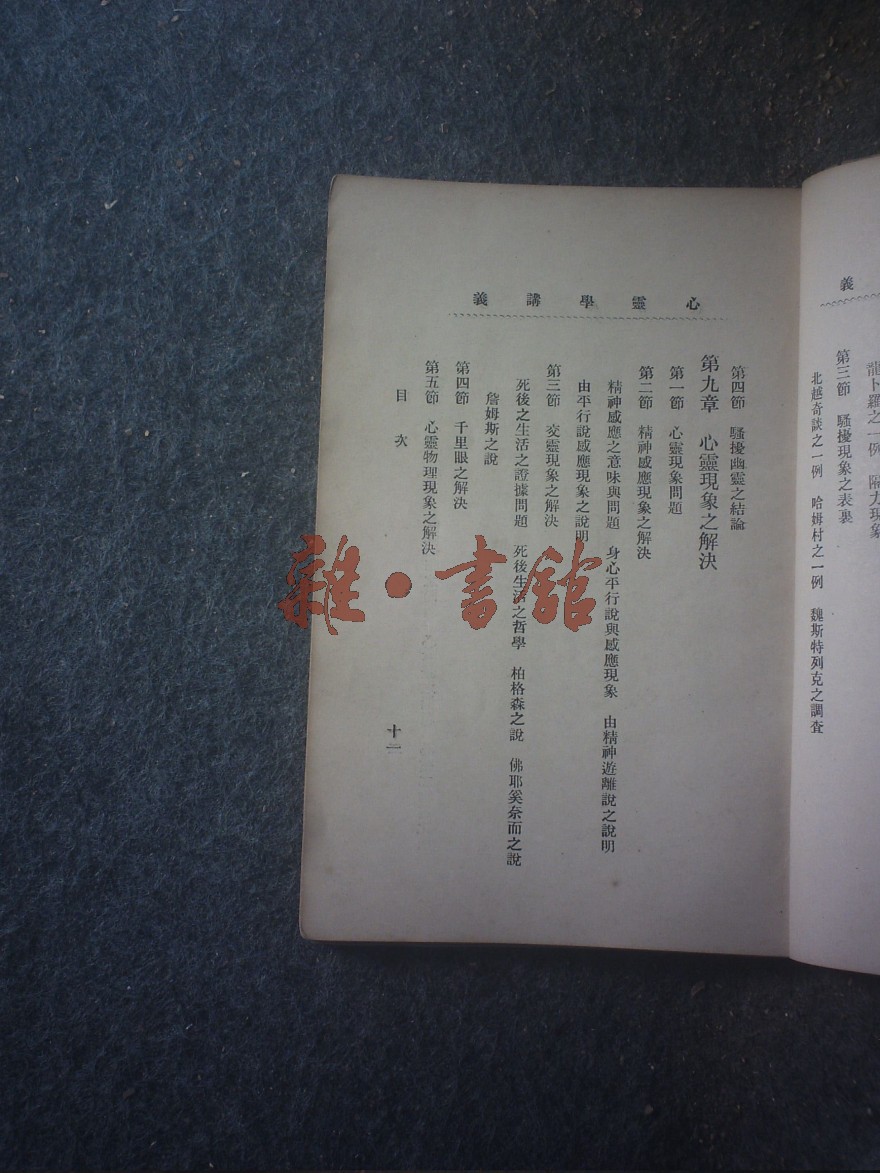 義
龍卜羅之一例
第三節　騷擾現象之表裏
北越奇談之一例　哈姆村之一例　魏斯特列克之調查
心靈學講義
第四節　騷擾幽靈之結論
第九章　心靈現象之解決
第一節　心靈現象問題
第二節　精神感應現象之解決
精神感應之意味與問題　身心平行說與感應現象　由精神遊離說之說明
由平行說感應現象之說明
第三節　交靈現象之解決
死後之生活之證據問題　死後生活之哲學　柏格森之說　佛耶奚奈而之說
詹姆斯之說
第四節　千里眼之解決
第五節　心靈物理現象之解決
目次
十二
雜·書館